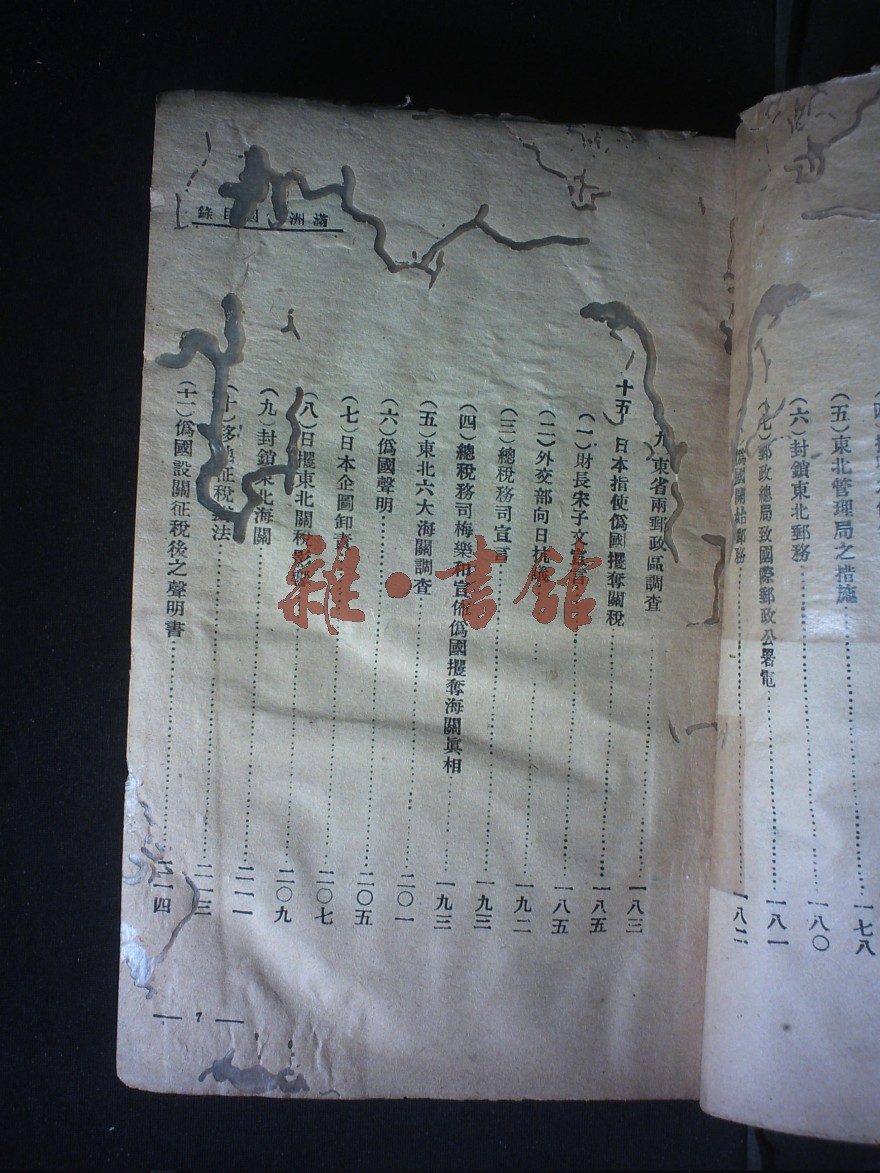 (五)東北管理局之措施……一七八
(六)封鎖東北郵務……一八〇
(七)郵政總局致國際郵政公署電……一八一
僞國開始郵務……一八二
滿洲 國目錄
九 東省兩郵政區調查……一八三
十五 日本指使僞國攫奪關稅……一八五
(一)財長宋子文宣言……一八五
(二)外交部向日抗議……一九二
(三)總稅務司宣言……一九三
(四)總稅務司梅樂和宣佈僞國攫奪海關眞相……一九三
(五)東北六大海關調查……二〇一
(六)僞國聲明……二〇五
(七)日本企圖卸責……二〇七
(八)日攫東北關稅……二〇九
(九)封鎖東北海關……二一一
(十)移 征稅辦法……二一三
(十一)僞國設關征稅後之聲明書……二一四
— 7 —
雜·書館